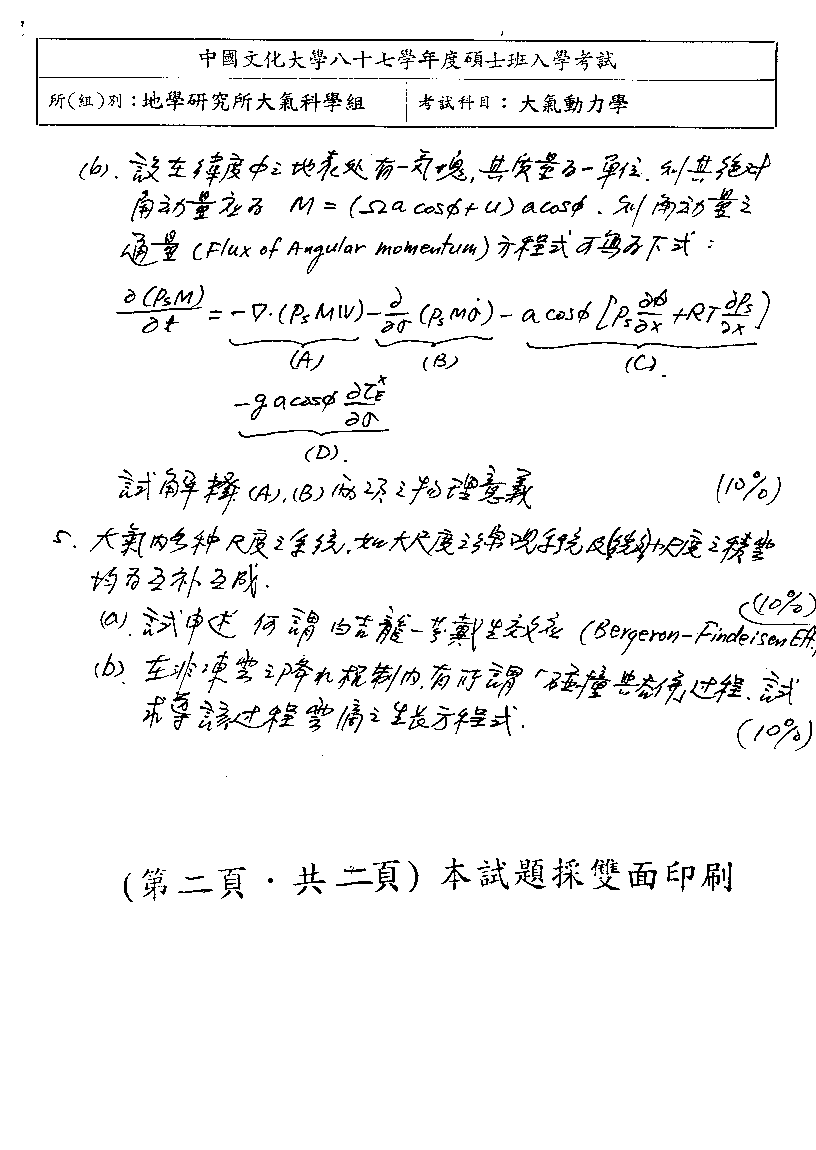 中國文化大學八十七學年度碩士班入學考試
所(組)別：地學研究所大氣科學組 考試科目：大氣動力學
(b). 設在緯度φ之地表处有一气塊, 其质量為一單位. 則其絕对
角动量应為 M = (Ωa cosφ + u) a cosφ. 則角动量之
通量 (Flux of Angular momentum) 方程式可寫為下式：
∂(PsM)/∂t = -∇·(PsMV) - ∂/∂σ (PsMσ̇) - a cosφ [Ps ∂Φ/∂x + RT ∂Ps/∂x]
(A) (B) (C).
-g a cosφ ∂τ_E^x/∂σ
(D).
試解釋 (A), (B) 兩項之物理意義 (10%)
5. 大氣內各种尺度之系統, 如大尺度之綜观系統及小尺度之積雲
均為互补互成.
(10%)
(a). 試申述何謂白吉龍－芬戴生效应 (Bergeron-Findeisen Eff.,
(b). 在非凍雲之降水机制內, 有所謂「碰撞与合併」过程. 試
求導該过程雲滴之生長方程式. (10%)
(第二頁·共二頁) 本試題採雙面印刷